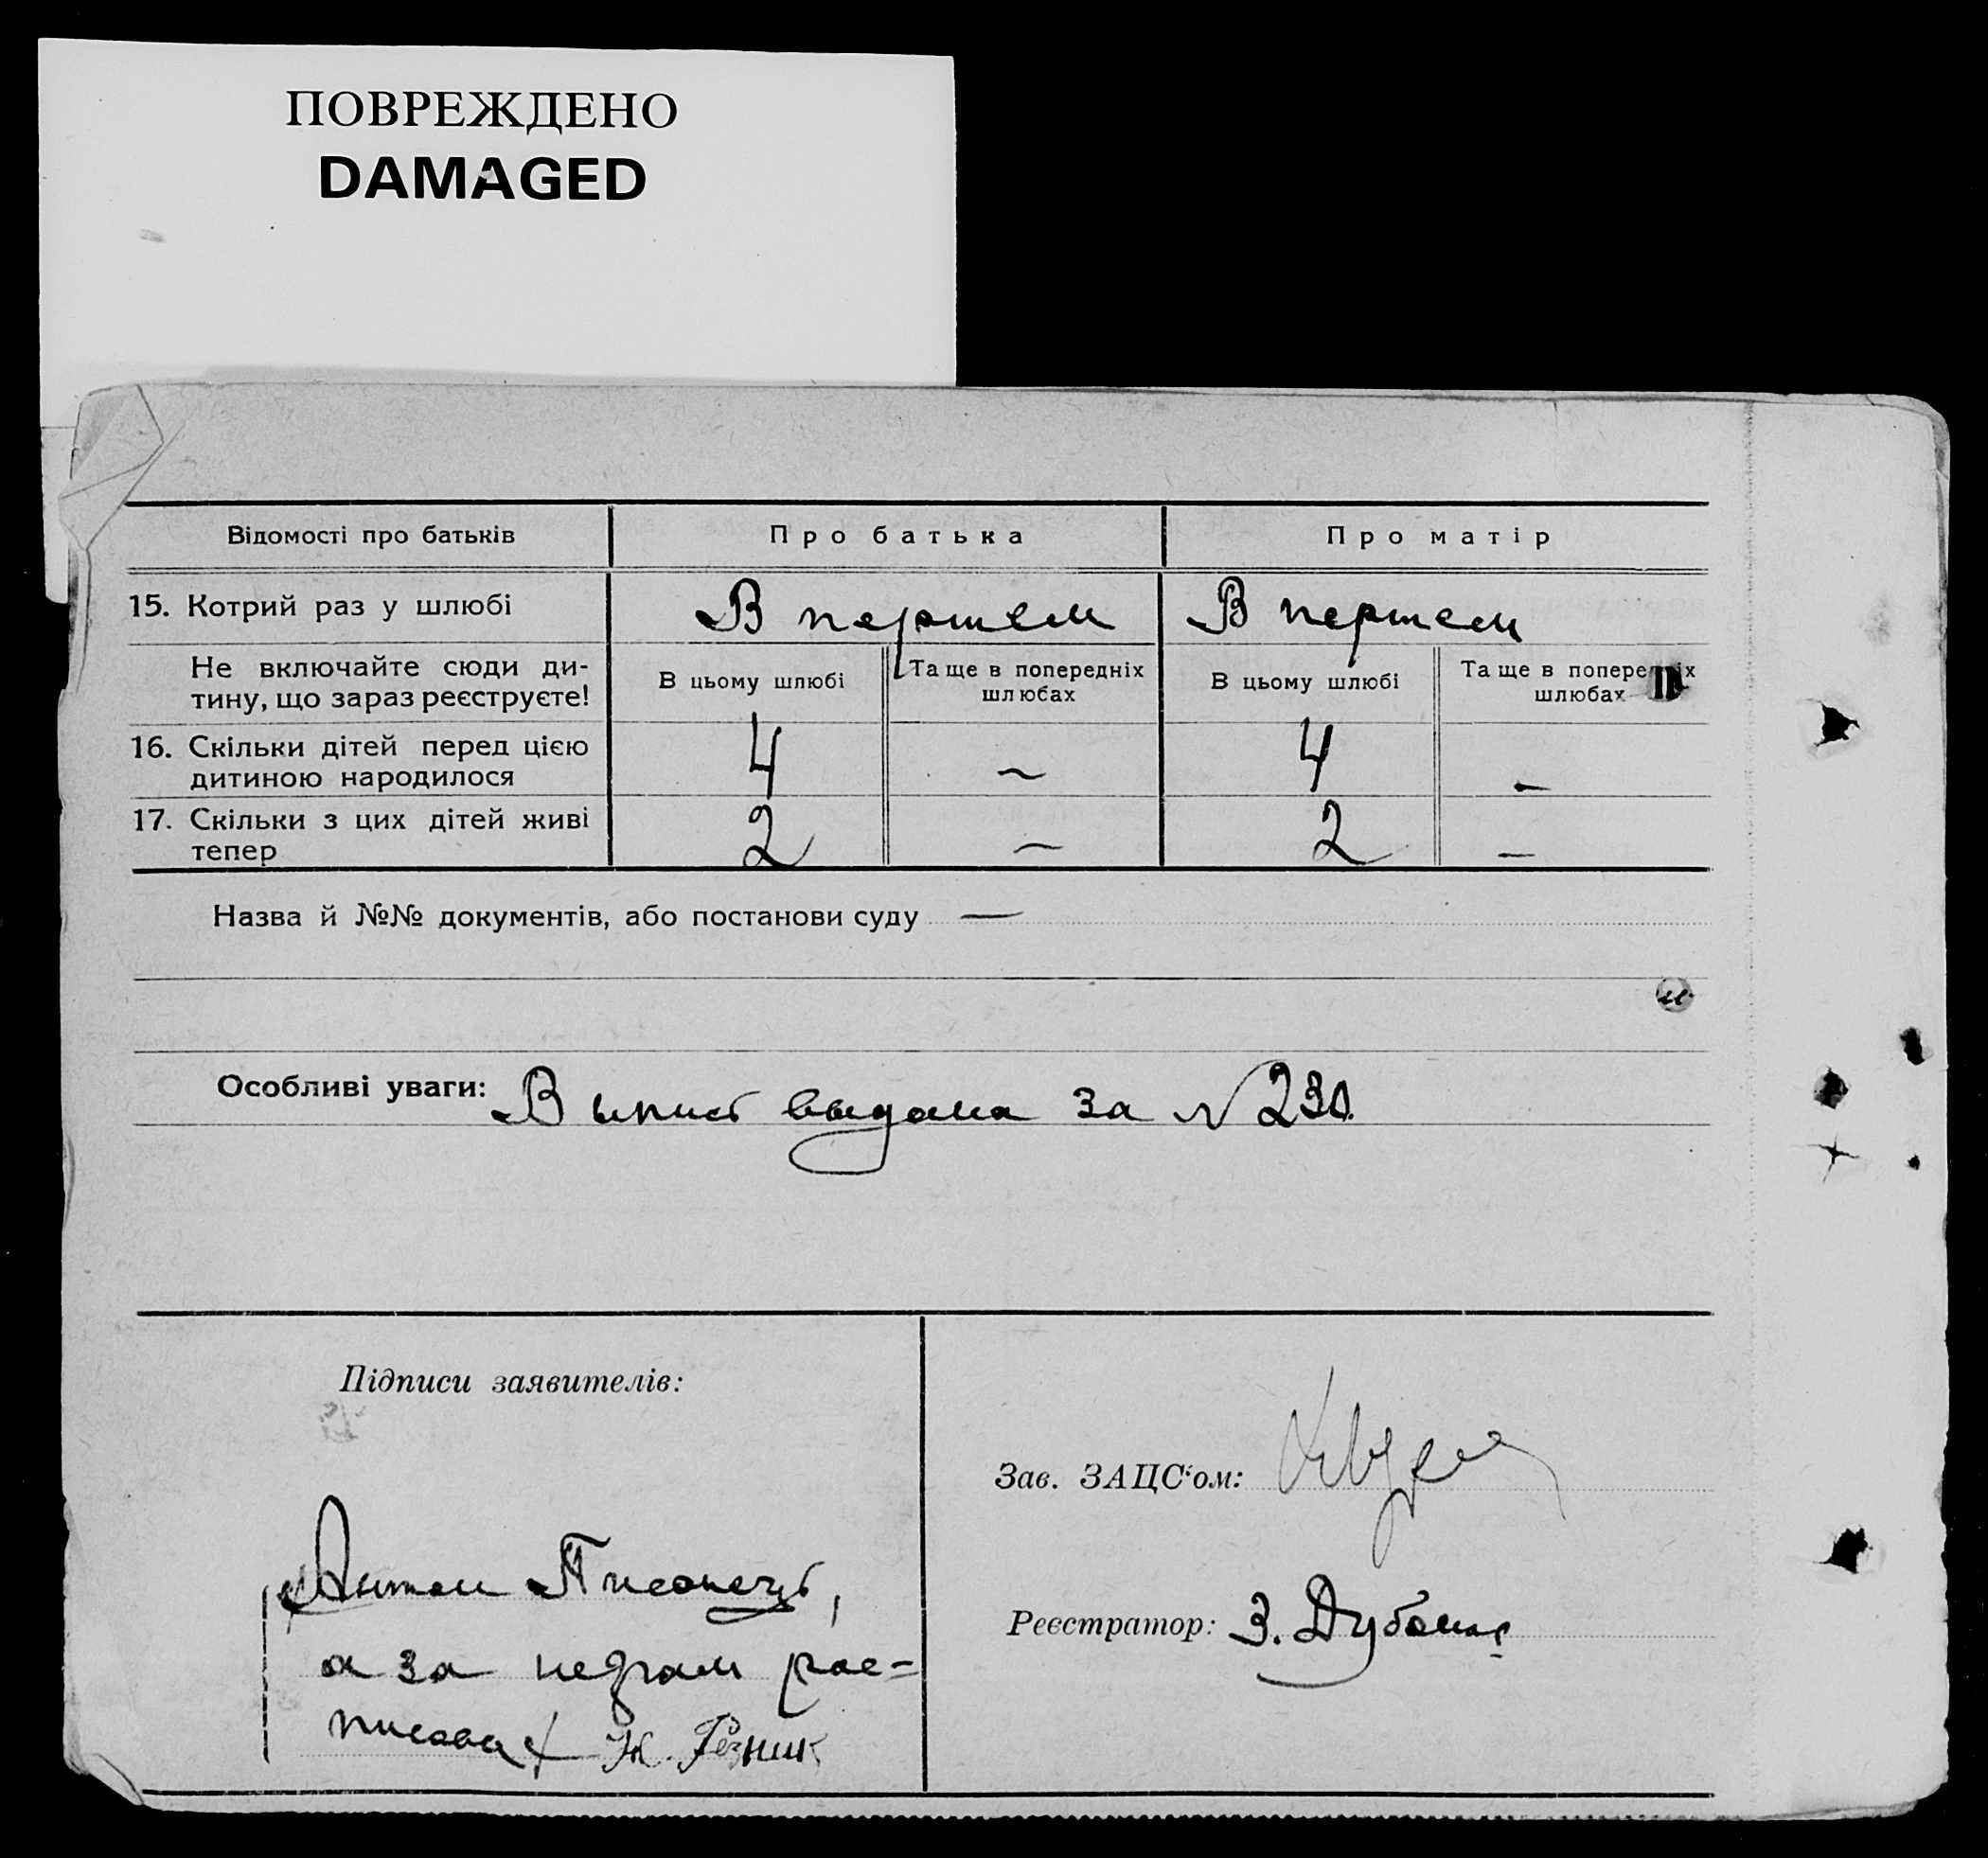 ПОВРЕЖДЕНО
DAMAGED
Відомості про батьків
Про батька
Про матір
15. Котрий раз у шлюбі
В першем
В першем
Не включайте сюди ди-
тину, що зараз реєструєте!
В цьому шлюбі
Та ще в попередніх
шлюбах
В цьому шлюбі
Та ще в попередніх
шлюбах
16. Скільки дітей перед цією
дитиною народилося
4
—
4
—
17. Скільки з цих дітей живі
тепер
2
—
2
—
Назва й №№ документів, або постанови суду —
Особливі уваги: Выпись выдана за N 230.
Підписи заявителів:
Антон
а за неграм рас-
писався Н. Резник
Зав. ЗАЦС'ом:
Реєстратор: З.